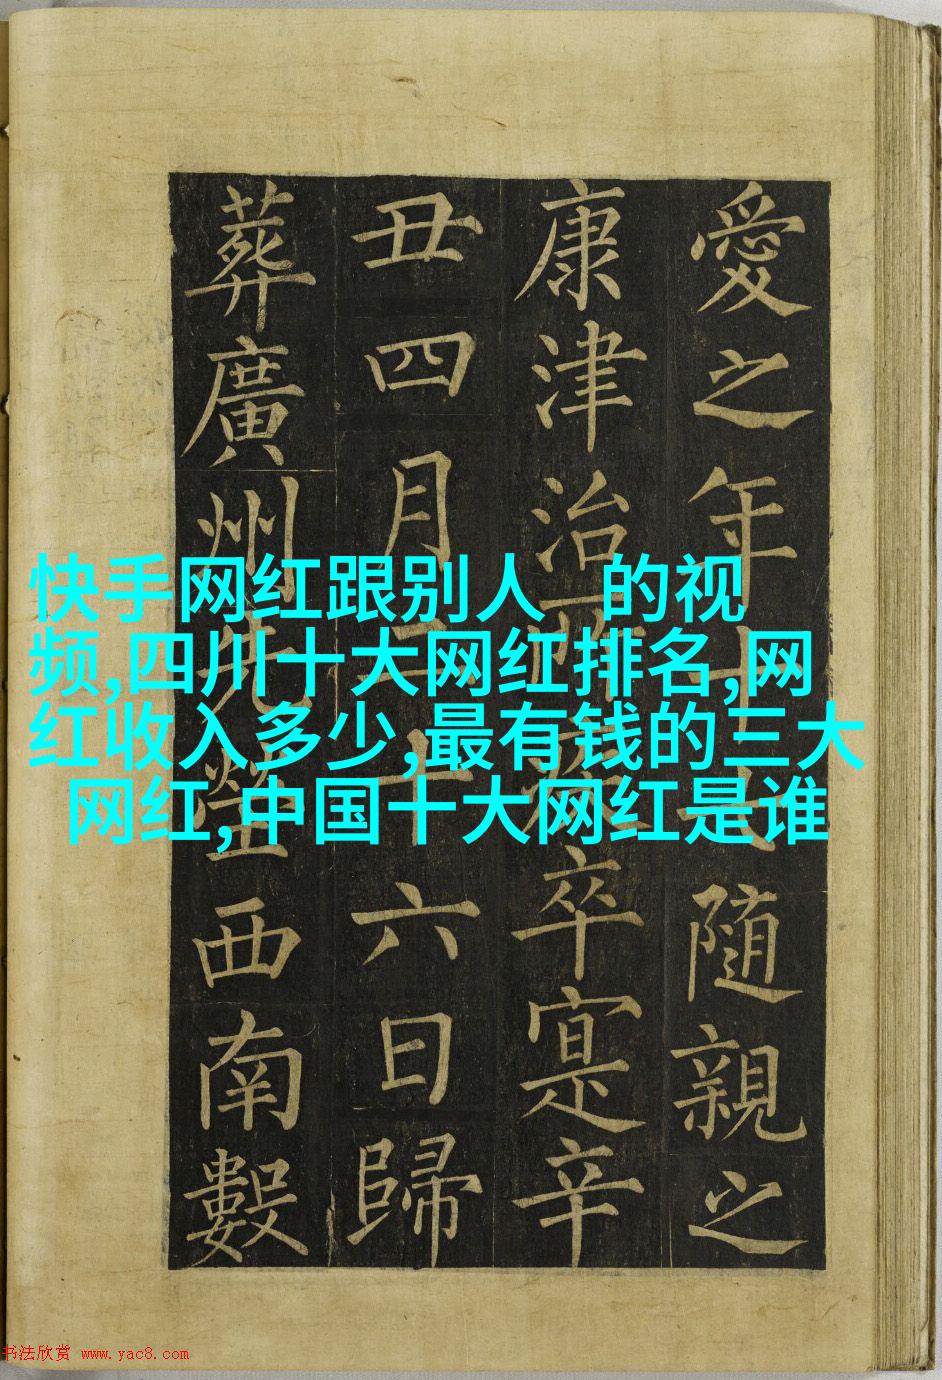 愛之年十隨親之
康津治卒寔辛
丑四月二十六日歸
葬廣州先塋西南數
快手网红跟别人 的视
频,四川十大网红排名,网
红收入多少,最有钱的三大
网红,中国十大网红是谁
书法欣赏 www.yac8.com